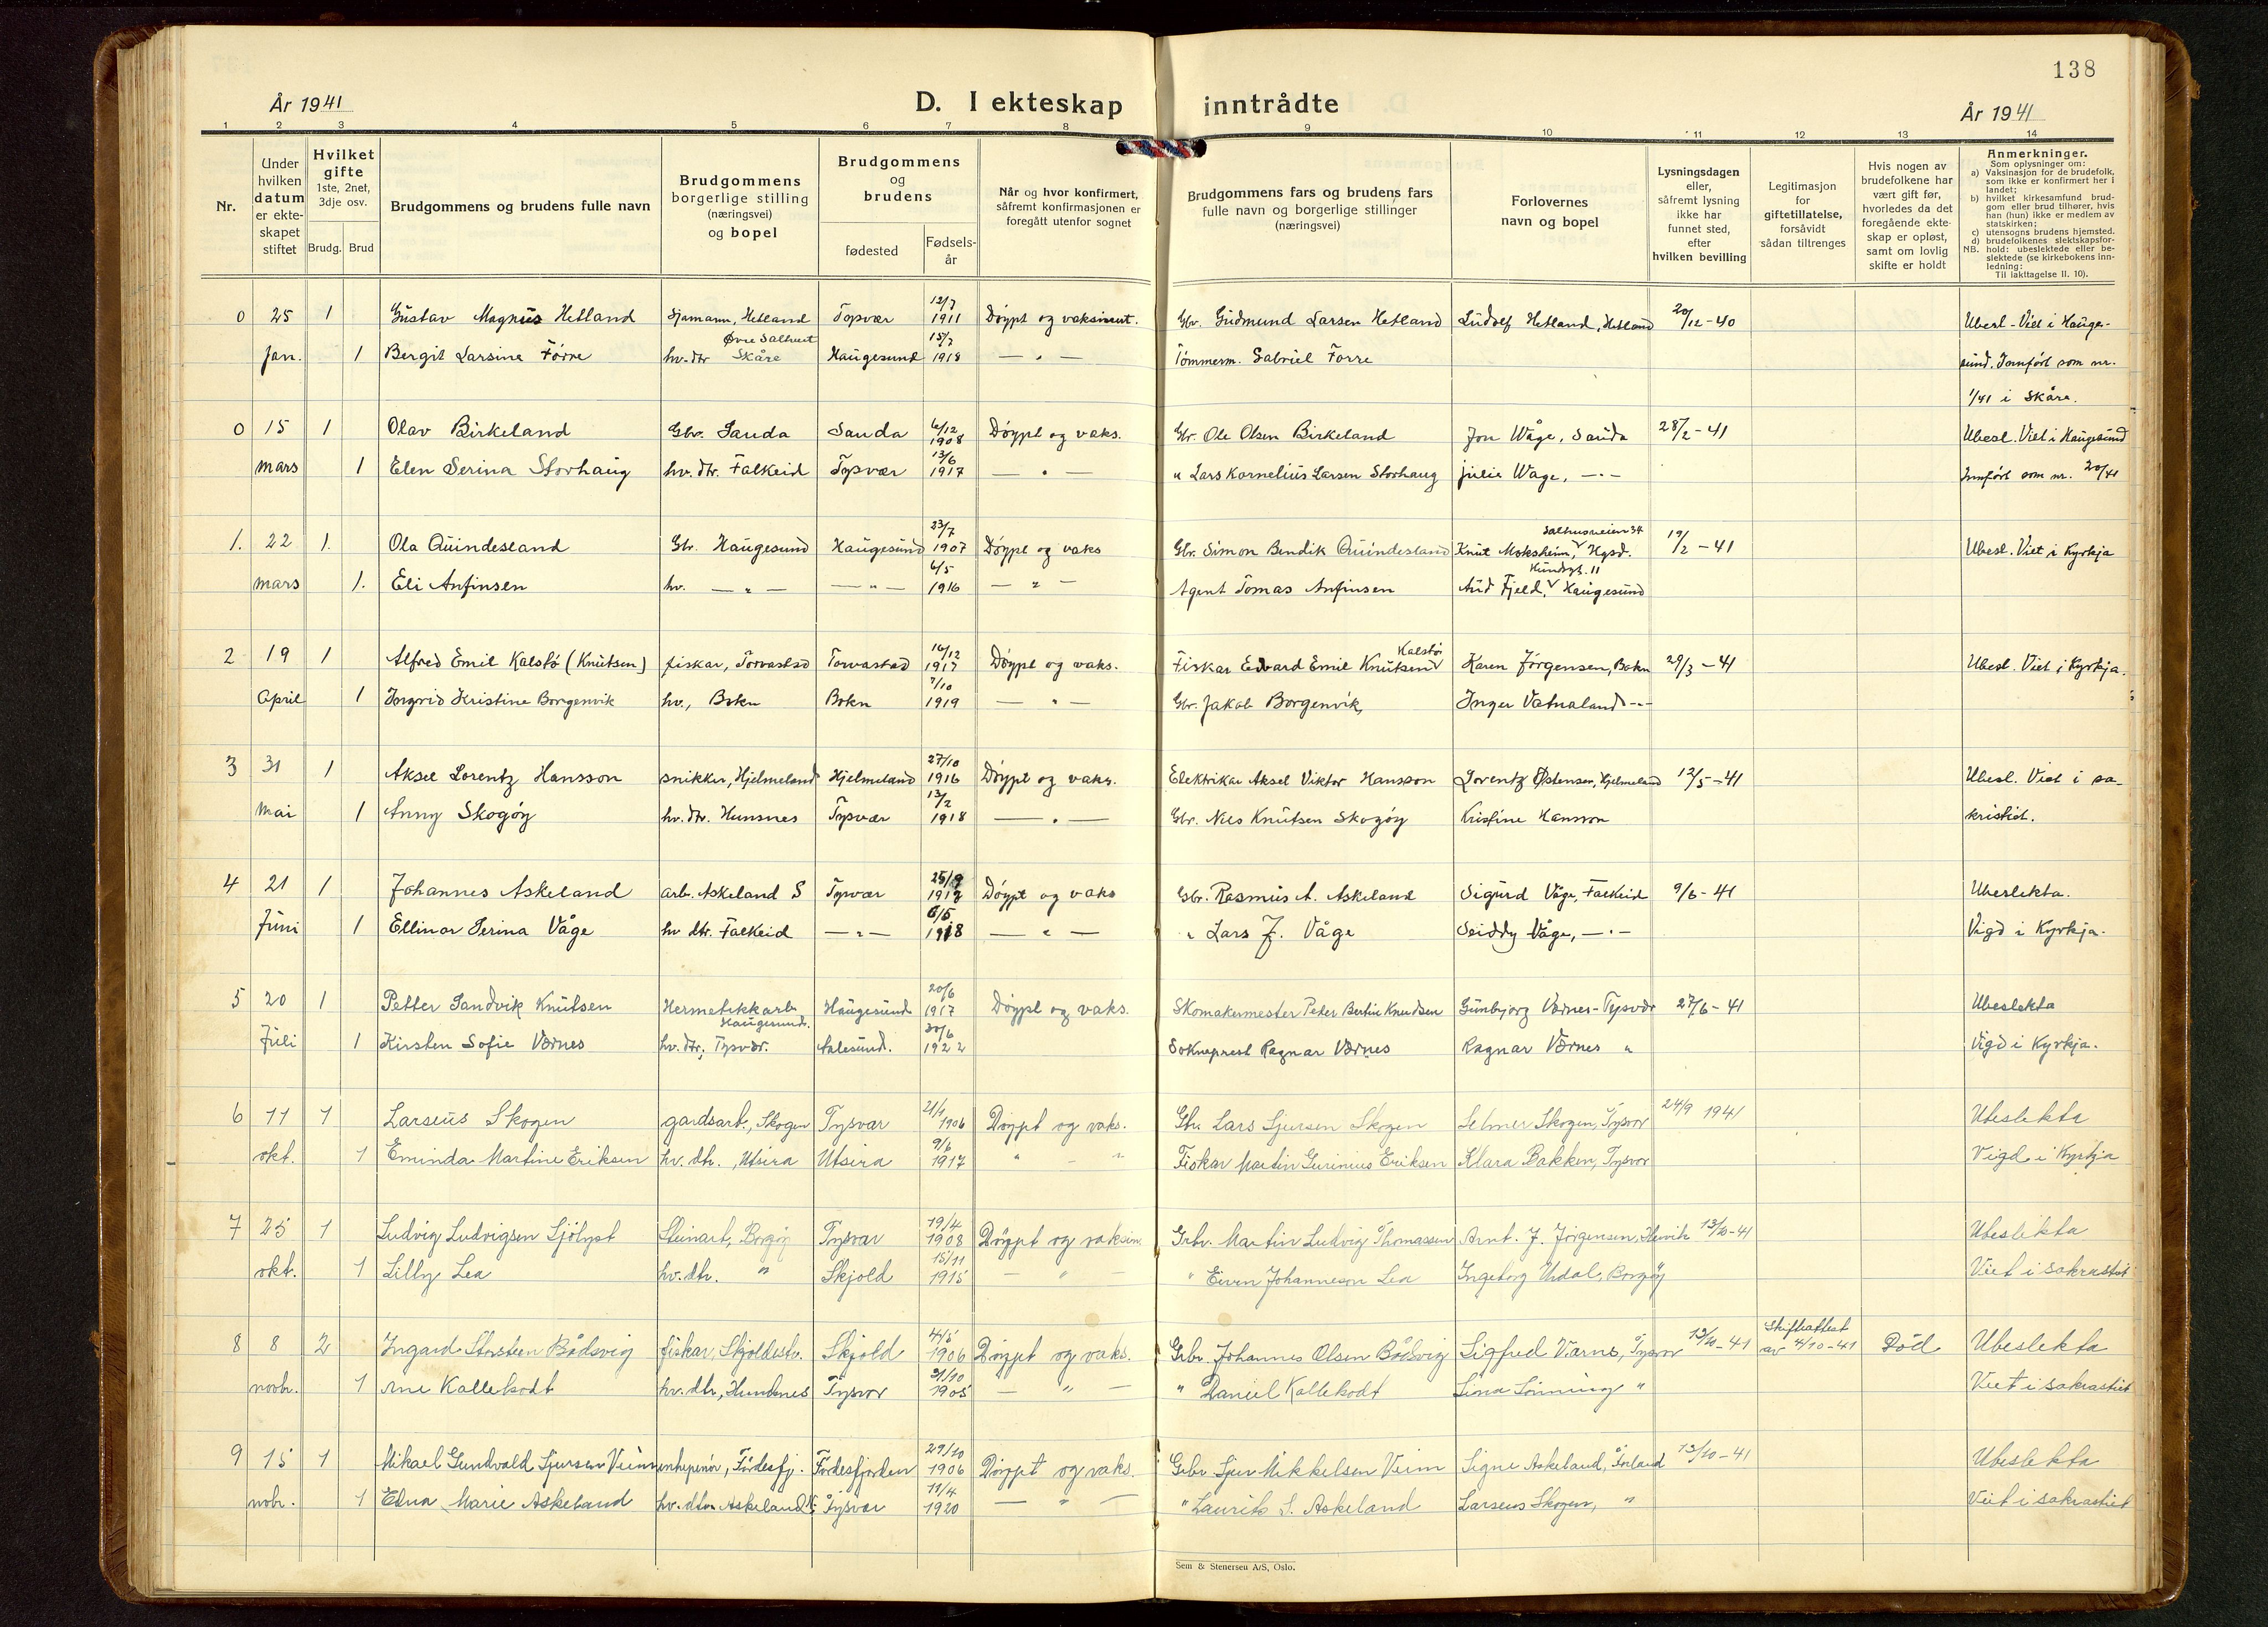 138
År 1941
D. I ekteskap inntrådte
År 1941
1 2 3 4 5 6 7 8 9 10 11 12 13 14
Nr.
Under hvilken datum er ekteskapet stiftet
Hvilket gifte 1ste, 2net, 3dje osv.
Brudg. Brud
Brudgommens og brudens fulle navn
Brudgommens borgerlige stilling (næringsvei) og bopel
Brudgommens og brudens
fødested
Fødselsår
Når og hvor konfirmert, såfremt konfirmasjonen er foregått utenfor sognet
Brudgommens fars og brudens fars fulle navn og borgerlige stillinger (næringsvei)
Forlovernes navn og bopel
Lysningsdagen eller, såfremt lysning ikke har funnet sted, efter hvilken bevilling
Legitimasjon for giftetillatelse, forsåvidt sådan tiltrenges
Hvis nogen av brudefolkene har vært gift før, hvorledes da det foregående ekteskap er opløst, samt om lovlig skifte er holdt
Anmerkninger.
Som oplysninger om:
a) Vaksinasjon for de brudefolk, som ikke er konfirmert her i landet;
b) hvilket kirkesamfund brudgom eller brud tilhører, hvis han (hun) ikke er medlem av statskirken;
c) utensogns brudens hjemsted.
d) brudefolkenes slektskapsforhold: ubeslektede eller beslektede (se kirkebokens innledning:
NB. Til iakttagelse II. 10).
0 25 1 Gustav Magnus Hetland Sjømann, Hetland Tysvær 12/7 1911 Døypt og vaksinert. Gbr. Gudmund Larsen Hetland Ludolf Hetland, Hetland 20/12-40 Ubesl - Viet i Hauge-
Jan. 1 Bergit Larsine Førre hv.dtr Øvre Salhust Skåre Haugesund 15/7 1918 — " — Tømmerm. Gabriel Førre sund. Innført som nr.
1/41 i Skåre.
0 15 1 Olav Birkeland Gbr. Sauda Sauda 6/12 1908 Døypt og vaks. Gbr. Ole Olsen Birkeland Jon Våge, Sauda 28/2-41 Ubesl. Viet i Haugesund
mars 1 Elen Serina Storhaug hv. dtr. Falkeid Tysvær 13/6 1917 — " — " Lars Kornelius Larsen Storhaug Julie Våge, — " — Innført som nr. 20/41
1. 22 1. Ola Quindesland Gbr. Haugesund Haugesund 23/7 1907 Døypt og vaks Gbr. Simon Bendik Quindesland Knut Moksheim, Salhusveien 34 Hgsd. 19/2-41 Ubesl. Viet i Kyrkja
mars 1. Eli Anfinsen hv. — " — — " — 6/5 1916 — " — Agent Tomas Anfinsen Aud Fjeld, 11 Haugesund
2 19 1 Alfred Emil Kalstø (Knutsen) fiskar, Torvastad Torvastad 16/12 1917 Døypt og vaks. Fiskar Edvard Emil Knutsen Kalstø Karen Jørgensen, Bokn 29/3-41 Ubesl. Viet i Kyrkja.
April 1 Ingrid Kristine Borgenvik hv., Bokn Bokn 7/10 1919 — " — Gbr. Jakob Borgenvik, Inger Vatnaland -"-
3 31 1 Aksel Lorentz Hansson snikker, Hjelmeland Hjelmeland 27/10 1916 Døypt og vaks. Elektrikar Aksel Viktor Hansson Lorentz Østensen, Hjelmeland 12/5-41 Ubesl. Viet i sa-
mai 1 Anny Skogøy hv. dtr. Hunsnes Tysvær 13/2 1918 — " — Gbr. Nils Knutsen Skogøy Kristine Hansson kristiet.
4 21 1 Johannes Askeland arb. Askeland S Tysvær 25/9 Døypt og vaks Gbr. Rasmus A. Askeland Sigurd Våge, Falkeid 9/6-41 Ubeslekta.
Juni 1 Ellinor Serina Våge hv dtr. Falkeid — " — 6/5 1918 — " — " Lars J. Våge Seiddy Våge, — " — Vigd i Kyrkja.
5 20 1 Petter Sandvik Knutsen Hermetikkarb. Haugesund. Haugesund 20/6 1917 Døypt og vaks. Skomakermester Peter Bertin Knudsen Gunbjørg Værnes - Tysvær 27/6-41 Ubeslekta
Juli 1 Kirsten Sofie Værnes hv. dtr, Tysvær. Aalesund. 30/6 1922 Sokneprest Ragnar Værnes Ragnar Værnes " Vigd i Kyrkja.
6 11 1 Larseus Skogen gardsarb., Skogen Tysvær 21/1 1906 Døypt og vaks. Gbr. Lars Sjursen Skogen Selmer Skogen, Tysvær 24/9 1941 Ubeslekta
okt. 1 Eminda Martine Eriksen hv. dtr., Utsira Utsira 9/6 1917 " — " Fiskar Martin Gurinius Eriksen Klara Bakken, Tysvær Vigd i Kyrkja
7 25 1 Ludvig Ludvigsen Sjølyst Steinarb, Borgøy Tysvær 19/4 1908 Døypt og vaksin. Grbr. Martin Ludvig Thomassen Arnt. J. Jørgensen, 13/10-41 Ubeslekta
okt. 1 Lilly Lea hv. dtr. " Skjold 15/11 1915 — " — " Eivin Johannesson Lea Ingeborg Urdal, Borgøy Viet i sakrastiet
8 8 2 Ingard Storsteen Bådsvig fiskar, Skjoldestr. Skjold 4/5 1906 Døypt og vaks. Grbr. Johannes Olsen Bådsvig Sigfred Värnes, Tysvær 13/10-41 Skifteattest av 4/10-41 Død Ubeslekta
novbr. 1 Ane Kallekodt hv. dtr, Hundsnes Tysvær 21/10 1905 — " — " Daniel Kallekodt Lina Lønning " Viet i sakrastiet
9 15 1 Mikael Gundvald Sjursen Veim , Førdesfj. Førdesfjorden 29/10 1906 Døypt og vaks. Grbr. Sjur Mikkelsen Veim Signe Askeland, Førland 13/10-41 Ubeslekta
nobr. 1 Edna Marie Askeland hv. dtr. Askeland N. Tysvær 11/4 1920 — " — " Laurits S. Askeland Larseus Skogen, " Viet i sakrastiet
Sem & Stenersen A/S, Oslo.